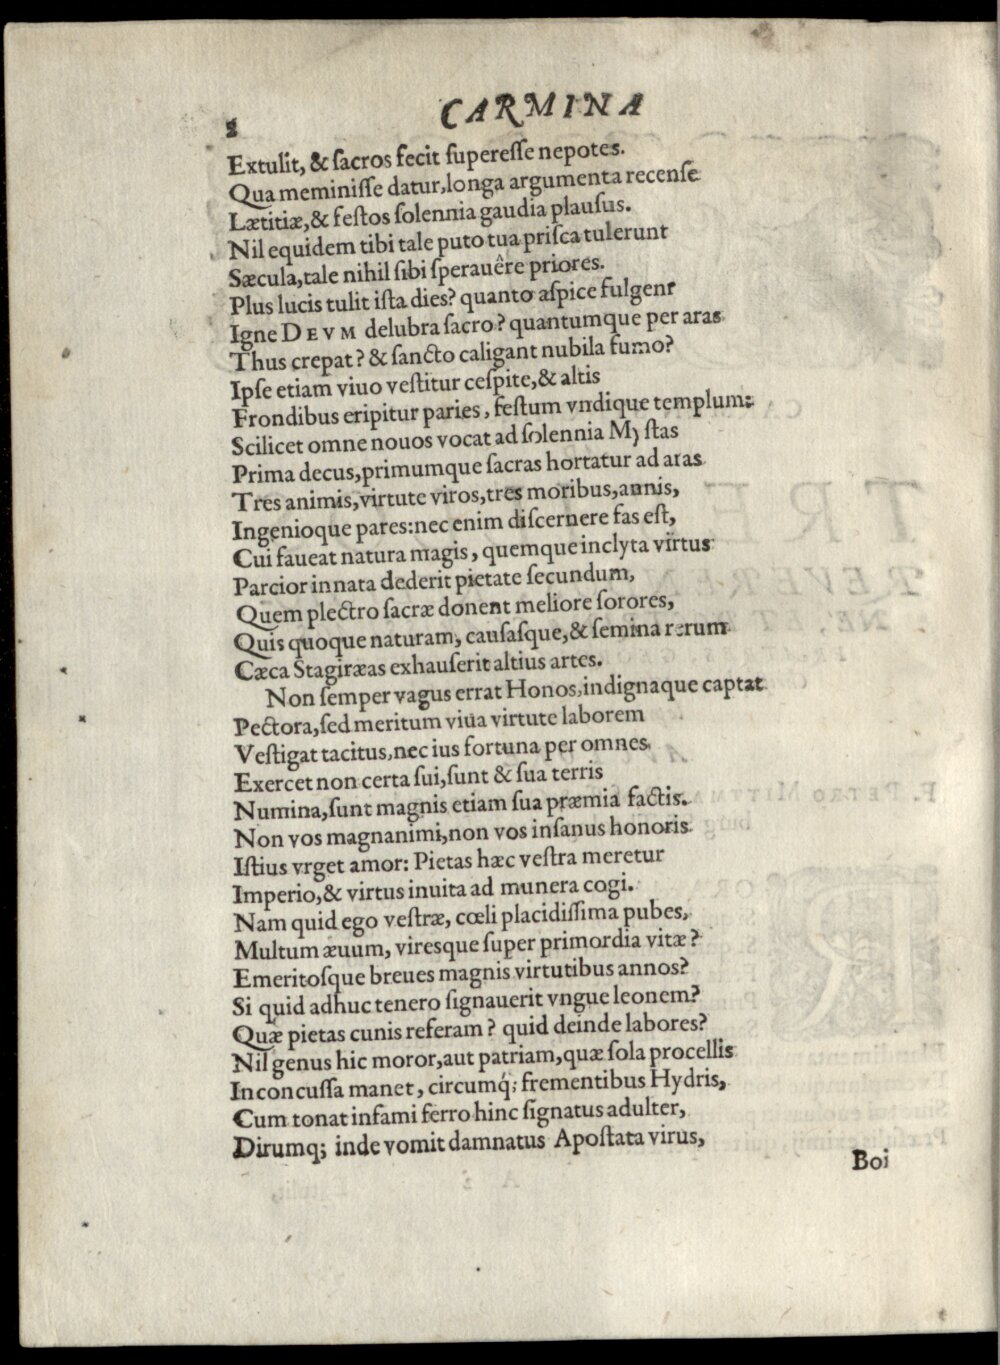 2 CARMINA
Extulit, & ſacros fecit ſupereſſe nepotes.
Qua meminiſſe datur, longa argumenta recenſe
Lætitiæ, & feſtos ſolennia gaudia plauſus.
Nil equidem tibi tale puto tua priſca tulerunt
Sæcula, tale nihil ſibi ſperauêre priores.
Plus lucis tulit iſta dies? quanto aſpice fulgent
Igne DEVM delubra ſacro? quantumque per aras
Thus crepat? & ſancto caligant nubila fumo?
Ipſe etiam viuo veſtitur ceſpite, & altis
Frondibus eripitur paries, feſtum vndique templum:
Scilicet omne nouos vocat ad ſolennia Myſtas
Prima decus, primumque ſacras hortatur ad aras
Tres animis, virtute viros, tres moribus, annis,
Ingenioque pares: nec enim diſcernere fas eſt,
Cui faueat natura magis, quemque inclyta virtus
Parcior innata dederit pietate ſecundum,
Quem plectro ſacræ donent meliore ſorores,
Quis quoque naturam, cauſasque, & ſemina rerum
Cæca Stagiræas exhauſerit altius artes.
Non ſemper vagus errat Honos, indignaque captat
Pectora, ſed meritum viua virtute laborem
Veſtigat tacitus, nec ius fortuna per omnes
Exercet non certa ſui, ſunt & ſua terris
Numina, ſunt magnis etiam ſua præmia factis.
Non vos magnanimi, non vos inſanus honoris
Iſtius vrget amor: Pietas hæc veſtra meretur
Imperio, & virtus inuita ad munera cogi.
Nam quid ego veſtræ, cœli placidiſſima pubes,
Multum æuum, viresque ſuper primordia vitæ?
Emeritoſque breues magnis virtutibus annos?
Si quid adhuc tenero ſignauerit vngue leonem?
Quæ pietas cunis referam? quid deinde labores?
Nil genus hic moror, aut patriam, quæ ſola procellis
Inconcuſſa manet, circumq́; frementibus Hydris,
Cum tonat infami ferro hinc ſignatus adulter,
Dirumq; inde vomit damnatus Apoſtata virus,
Boi